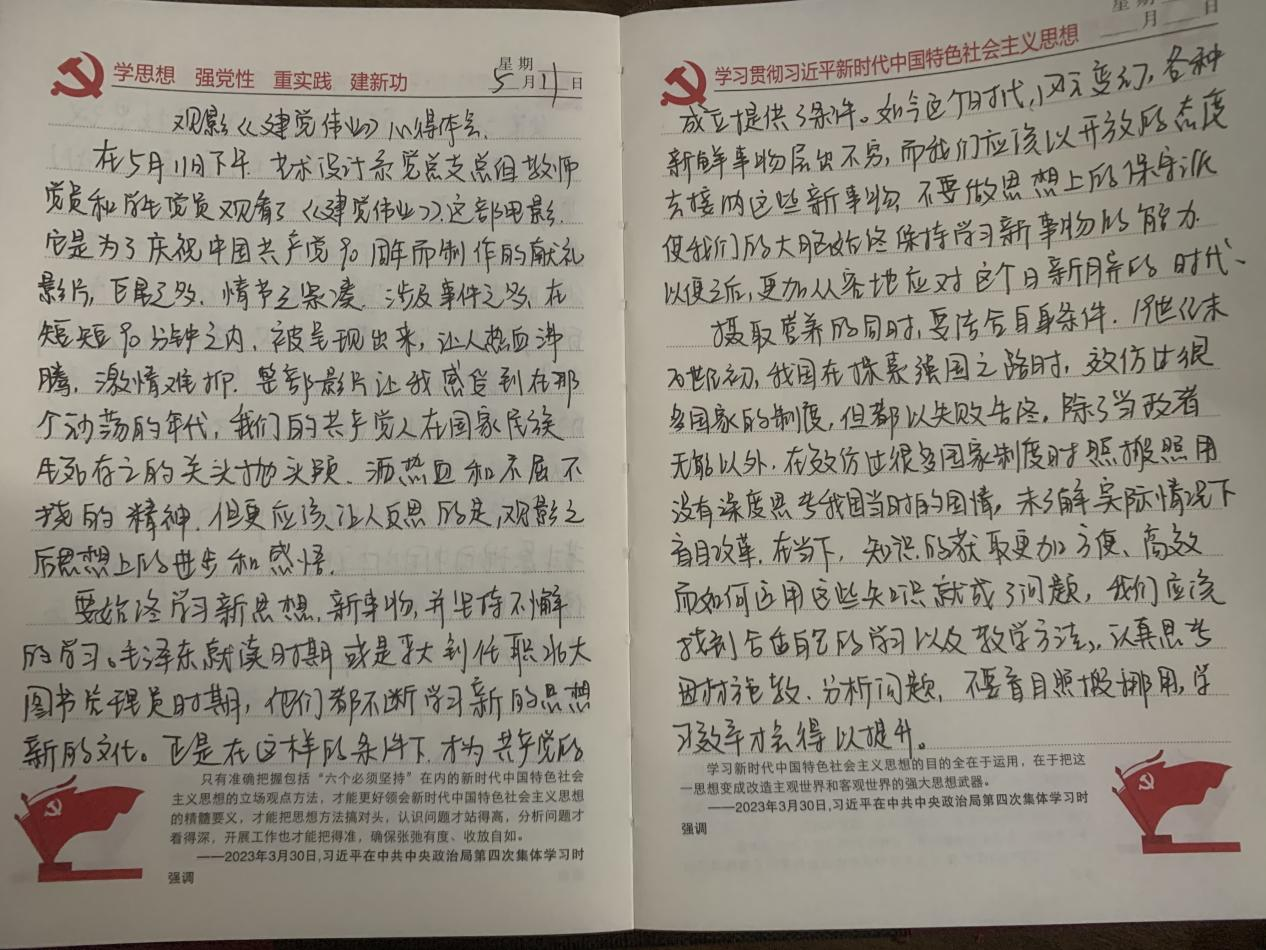 学思想 强党性 重实践 建新功
星期
5月11日
观影《建党伟业》心得体会.
在5月11日下午.艺术设计系党总支总组教师
党员和学生党员观看了《建党伟业》这部电影.
它是为了庆祝中国共产党90周年而制作的献礼
影片,巨星之多.情节之紧凑.涉及事件之多.在
短短90分钟之内.被呈现出来,让人热血沸
腾,激情难抑.整部影片让我感受到在那
个动荡的年代,我们的共产党人在国家民族
生死存亡的关头抛头颅.洒热血和不屈不
挠的精神.但更应该让人反思的是,观影之
后思想上的进步和感悟.
要始终学习新思想.新事物,并坚持不懈
的学习。毛泽东就读时期或是李大钊任职北大
图书管理员时期,他们都不断学习新的思想
新的文化。正是在这样的条件下.才为共产党的
只有准确把握包括“六个必须坚持”在内的新时代中国特色社会
主义思想的立场观点方法,才能更好领会新时代中国特色社会主义思想
的精髓要义,才能把思想方法搞对头,认识问题才站得高,分析问题才
看得深,开展工作也才能把得准,确保张弛有度、收放自如。
——2023年3月30日,习近平在中共中央政治局第四次集体学习时
强调
学习贯彻习近平新时代中国特色社会主义思想
星期
月 日
成立提供了条件。如今这个时代,风云变幻,各种
新鲜事物层出不穷,而我们应该以开放的态度
去接纳这些新事物.不要做思想上的保守派
使我们的大脑始终保持学习新事物的能力.
以便之后,更加从容地应对这个日新月异的时代、
摄取营养的同时,要结合自身条件.19世纪末
20世纪初,我国在探索强国之路时,效仿过很
多国家的制度,但都以失败告终。除了当政者
无能以外.在效仿过很多国家制度时照搬照用
没有深度思考我国当时的国情,未了解实际情况下
盲目改革.在当下,知识的获取更加方便、高效
而如何运用这些知识就成了问题,我们应该
找到合适自己的学习以及教学方法,认真思考
因材施教.分析问题,不要盲目照搬挪用,学
习效率才会得以提升。
学习新时代中国特色社会主义思想的目的全在于运用,在于把这
一思想变成改造主观世界和客观世界的强大思想武器。
——2023年3月30日,习近平在中共中央政治局第四次集体学习时
强调